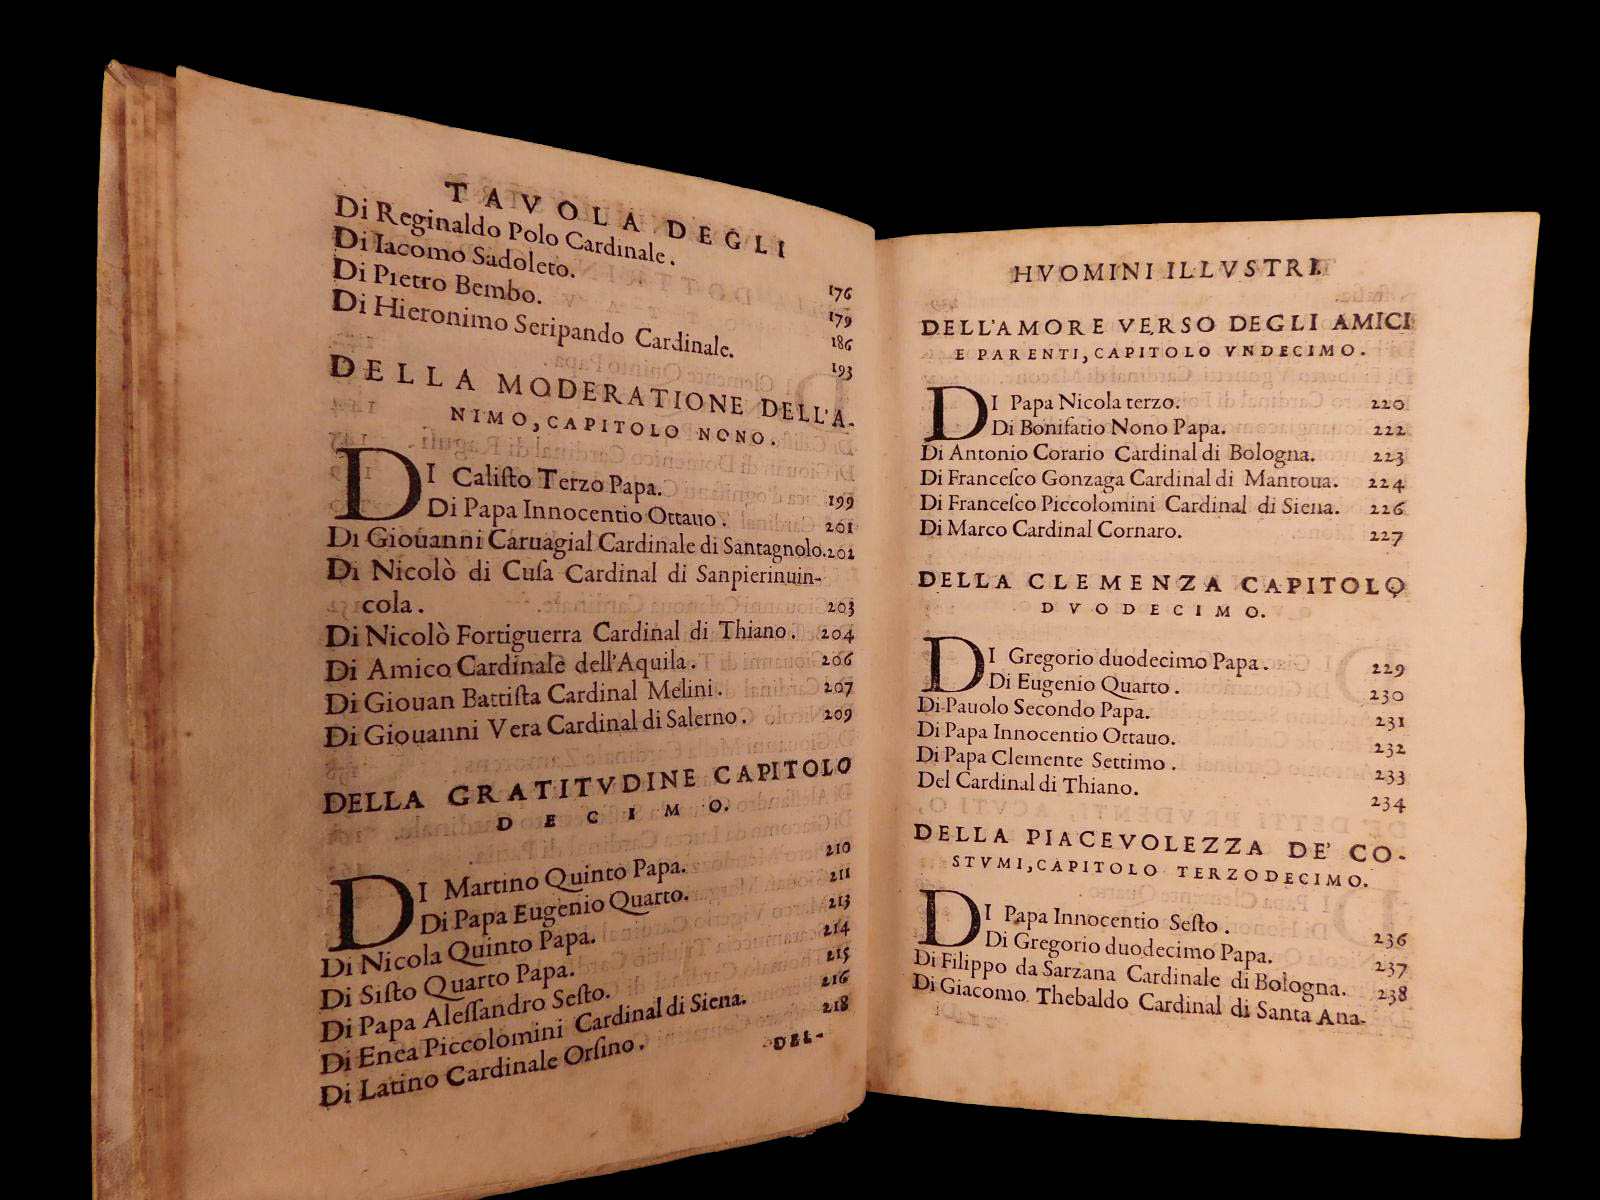 TAVOLA DEGLI
Di Reginaldo Polo Cardinale. 176
Di Iacomo Sadoleto. 179
Di Pietro Bembo. 186
Di Hieronimo Seripando Cardinale. 193
DELLA MODERATIONE DELL'A-
NIMO, CAPITOLO NONO.
DI Caliſto Terzo Papa. 199
Di Papa Innocentio Ottauo. 201
Di Giouanni Caruagial Cardinale di Santagnolo. 202
Di Nicolò di Cuſa Cardinal di Sanpierinuin-
cola. 203
Di Nicolò Fortiguerra Cardinal di Thiano. 204
Di Amico Cardinale dell'Aquila. 206
Di Giouan Battiſta Cardinal Melini. 207
Di Giouanni Vera Cardinal di Salerno. 209
DELLA GRATITVDINE CAPITOLO
DECIMO.
DI Martino Quinto Papa. 210
Di Papa Eugenio Quarto. 211
Di Nicola Quinto Papa. 213
Di Siſto Quarto Papa. 214
Di Papa Aleſſandro Seſto. 215
Di Enea Piccolomini Cardinal di Siena. 216
Di Latino Cardinale Orſino. 218
DEL-
HVOMINI ILLVSTRI.
DELL'AMORE VERSO DEGLI AMICI
E PARENTI, CAPITOLO VNDECIMO.
DI Papa Nicola terzo. 220
Di Bonifatio Nono Papa. 222
Di Antonio Corario Cardinal di Bologna. 223
Di Franceſco Gonzaga Cardinal di Mantoua. 224
Di Franceſco Piccolomini Cardinal di Siena. 226
Di Marco Cardinal Cornaro. 227
DELLA CLEMENZA CAPITOLO
DVODECIMO.
DI Gregorio duodecimo Papa. 229
Di Eugenio Quarto. 230
Di Pauolo Secondo Papa. 231
Di Papa Innocentio Ottauo. 232
Di Papa Clemente Settimo. 233
Del Cardinal di Thiano. 234
DELLA PIACEVOLEZZA DE' CO-
STVMI, CAPITOLO TERZODECIMO.
DI Papa Innocentio Seſto. 236
Di Gregorio duodecimo Papa. 237
Di Filippo da Sarzana Cardinale di Bologna. 238
Di Giacomo Thebaldo Cardinal di Santa Ana-